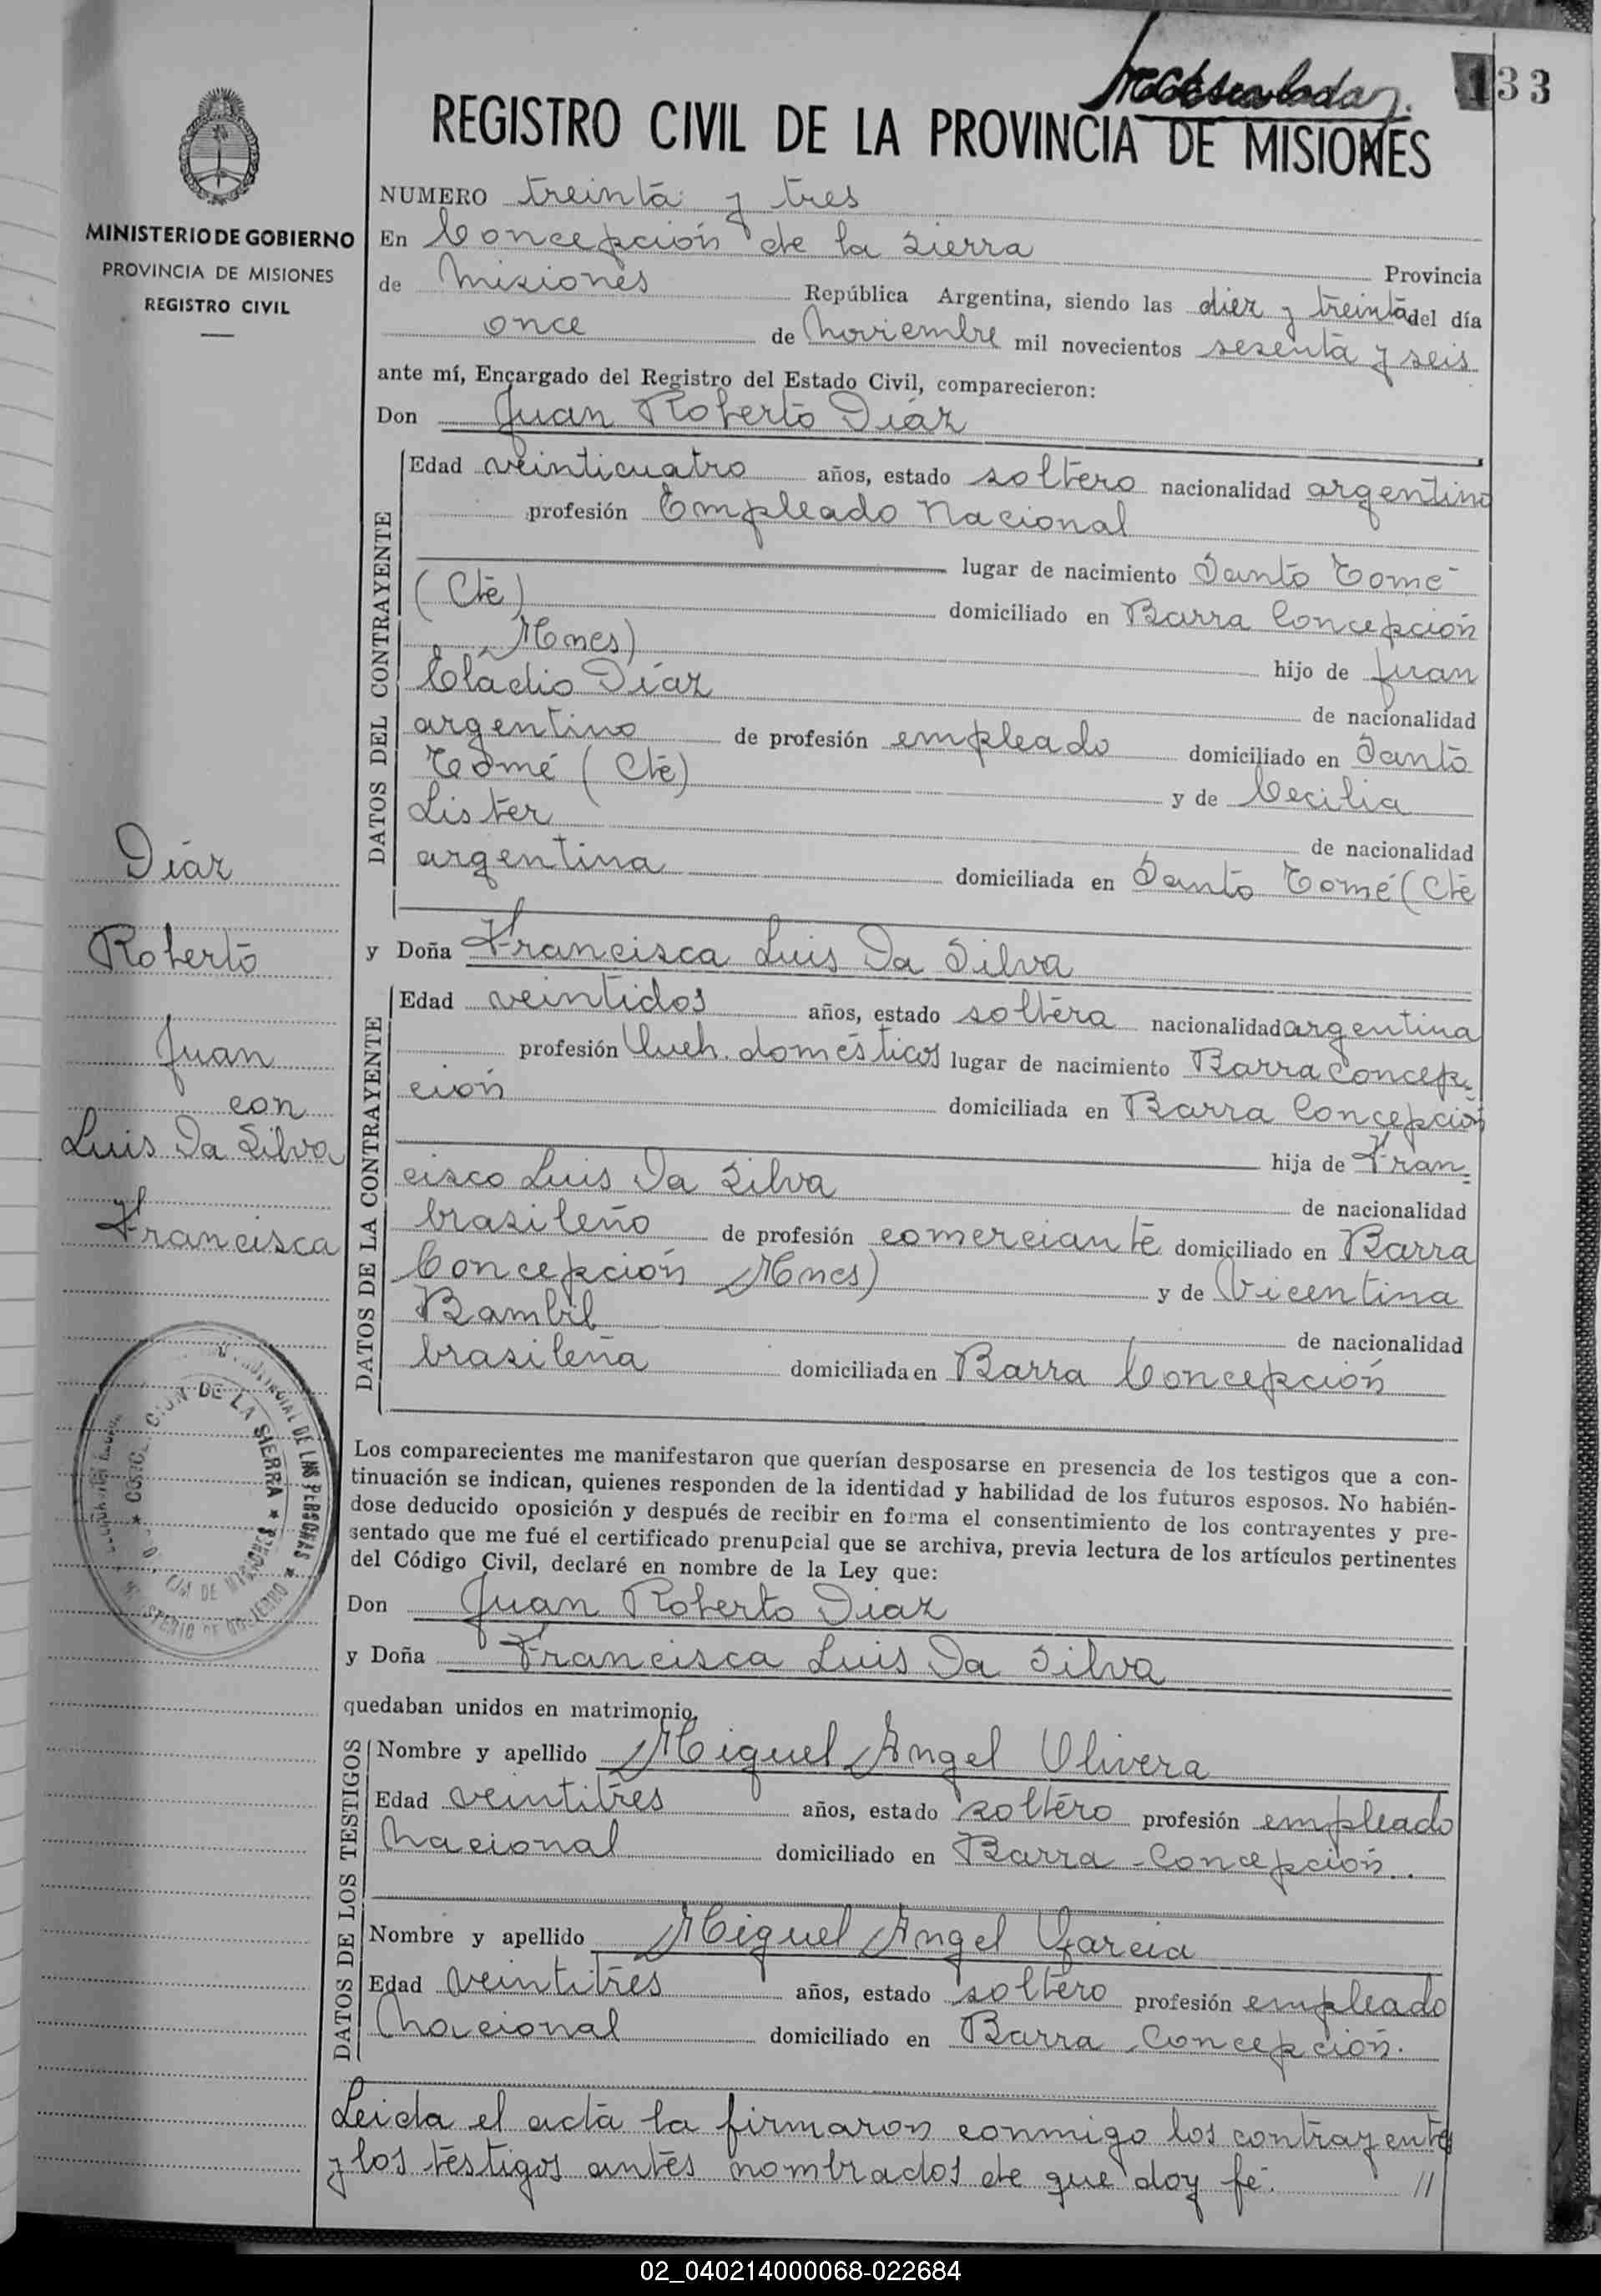 133
REGISTRO CIVIL DE LA PROVINCIA DE MISIONES
MINISTERIO DE GOBIERNO
PROVINCIA DE MISIONES
REGISTRO CIVIL
NUMERO treinta y tres
En Concepción de la Sierra Provincia
de Misiones República Argentina, siendo las diez y treinta del día
once de Noviembre mil novecientos sesenta y seis
ante mí, Encargado del Registro del Estado Civil, comparecieron:
Don Juan Roberto Díaz
DATOS DEL CONTRAYENTE
Edad veinticuatro años, estado soltero nacionalidad argentino
profesión Empleado Nacional
lugar de nacimiento Santo Tomé
(Cte) domiciliado en Barra Concepción
Mnes) hijo de Juan
Eladio Díaz de nacionalidad
argentino de profesión empleado domiciliado en Santo
Tomé (Cte) y de Cecilia
Lister de nacionalidad
argentina domiciliada en Santo Tomé (Cte
y Doña Francisca Luis Da Silva
DATOS DE LA CONTRAYENTE
Edad veintidos años, estado soltera nacionalidad argentina
profesión Queh. domésticos lugar de nacimiento Barra Concep-
ción domiciliada en Barra Concepción
hija de Fran=
cisco Luis Da Silva de nacionalidad
brasileño de profesión comerciante domiciliado en Barra
Concepción Mnes) y de Vicentina
Bambil de nacionalidad
brasileña domiciliada en Barra Concepción
Los comparecientes me manifestaron que querían desposarse en presencia de los testigos que a con-
tinuación se indican, quienes responden de la identidad y habilidad de los futuros esposos. No habién-
dose deducido oposición y después de recibir en forma el consentimiento de los contrayentes y pre-
sentado que me fué el certificado prenupcial que se archiva, previa lectura de los artículos pertinentes
del Código Civil, declaré en nombre de la Ley que:
Don Juan Roberto Diaz
y Doña Francisca Luis Da Silva
quedaban unidos en matrimonio.
DATOS DE LOS TESTIGOS
Nombre y apellido Miguel Angel Olivera
Edad veintitres años, estado soltero profesión empleado
Nacional domiciliado en Barra Concepción..
Nombre y apellido Miguel Angel Garcia
Edad veintitres años, estado soltero profesión empleado
Nacional domiciliado en Barra Concepción.
Leida el acta la firmaron conmigo los contrayentes
y los testigos antes nombrados de que doy fé. //
Díaz
Roberto
Juan
con
Luis Da Silva
Francisca
DE LA SIERRA
DE LAS PERSONAS
02_040214000068-022684